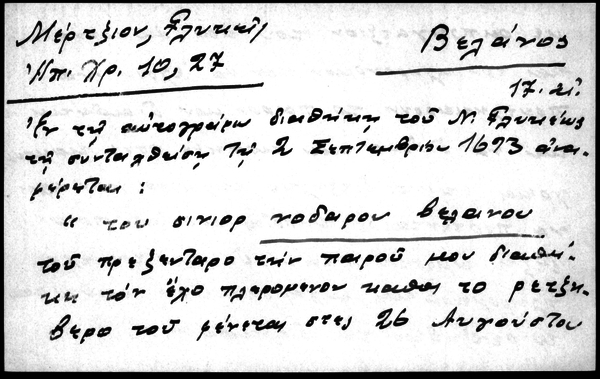 Μέρτζιον, Γλυκεῖς
Ἠπ. Χρ. 10, 27
Βελάνος
17. αἰ.
Ἐν τῇ αὐτογράφῳ διαθήκῃ τοῦ Ν. Γλυκέως
τῇ συνταχθείσῃ τῇ 2 Σεπτεμβρίου 1693 ἀνα-
φέρεται:
" του σινιορ νοδαρου βελανου
τοῦ πρεζενταρο τὴν παροῦ μου διαθή-
κη τὸν ἔχο πλερομενον καθὼ το ρετζη-
βερο τοῦ φένεται στες 26 Αυγούστου